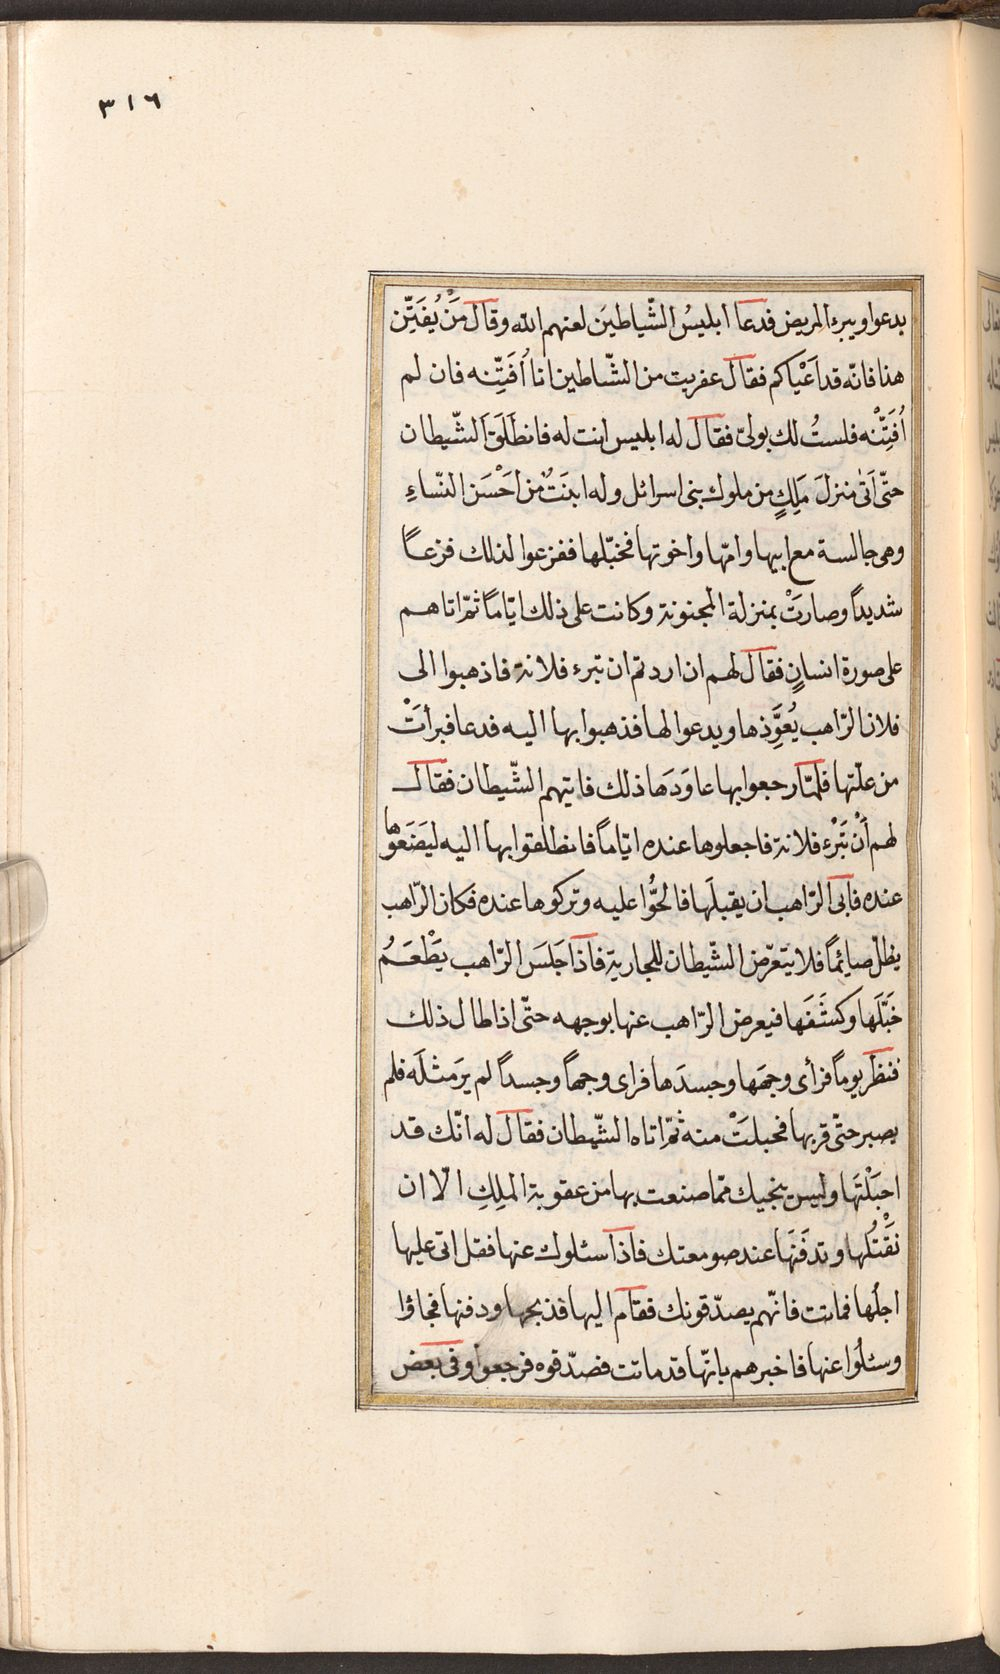 ٣١٦
يدعوا ويبرء المريض فدعا ابليسُ الشّياطينَ لعنهم الله وقال مَنْ يُفَتِّن
هذا فانّه قد اَعْياكم فقال عفريت من الشّياطين انا اُفَتِّنه فان لم
اُفَتِّنْه فلستُ لك بولىّ فقال له ابليس انت له فانطَلَقَ الشّيطان
حتّى اَتىٰ منزلَ مَلِكٍ من ملوك بنى اسرائل وله ابنَتٌ من اَحْسَن النّساءِ
وهى جالسة مع ابيها وامّها واخوتها فخبّلها ففزعوا لذلك فزعاً
شديداً وصارَتْ بمنزلة المجنونة وكانت على ذلك ايّاماً ثمّ اتاهم
على صورة انسانٍ فقال لهم ان اردتم ان تبرء فلانة فاذهبوا الى
فلان الرّاهب يُعَوِّذها ويدعوا لها فذهبوا بها اليه فدعا فبرأَتْ
من علّتها فلمّا رجعوا بها عاوَدَها ذلك فاتيهم الشّيطان فقال
لهم اَنْ تَبْرء فلانة فاجعلوها عنده ايّاماً فانطلقوا بها اليه ليَضَعَوُها
عنده فابى الرّاهب ان يقبلَها فالحُّوا عليه وتركوها عنده فكان الرّاهب
يظلّ صايُماً فلا يتَعرّض الشّيطان للجارية فاذا جَلَسَ الرّاهب يَطْعَمُ
خَبّلَها وكَشَفَها فيعرض الرّاهب عنها بوجهه حتّى اذا طال ذلك
فنظر يوماً فرأى وجهَها وجسدَها فراى وجهاً وجسداً لم يرَ مثلَه فلم
يصبر حتّى قربها فحبلَتْ منه ثمّ اتاه الشّيطان فقال له انّك قد
احبَلْتَها وليس ينجيك ممّا صنعت بها من عقوبة الملِكِ الّا ان
تقْتُلها وتدفَنَها عند صومعتك فاذا سئلوك عنها فقل اتى عليها
اجلُها فماتت فانّهم يصدّقونك فقام اليها فذبحها ودفنها فجاؤا
وسئلُوا عنها فاخبرهم بانّها قد ماتت فصدّقوه فرجعوا وفى بعض